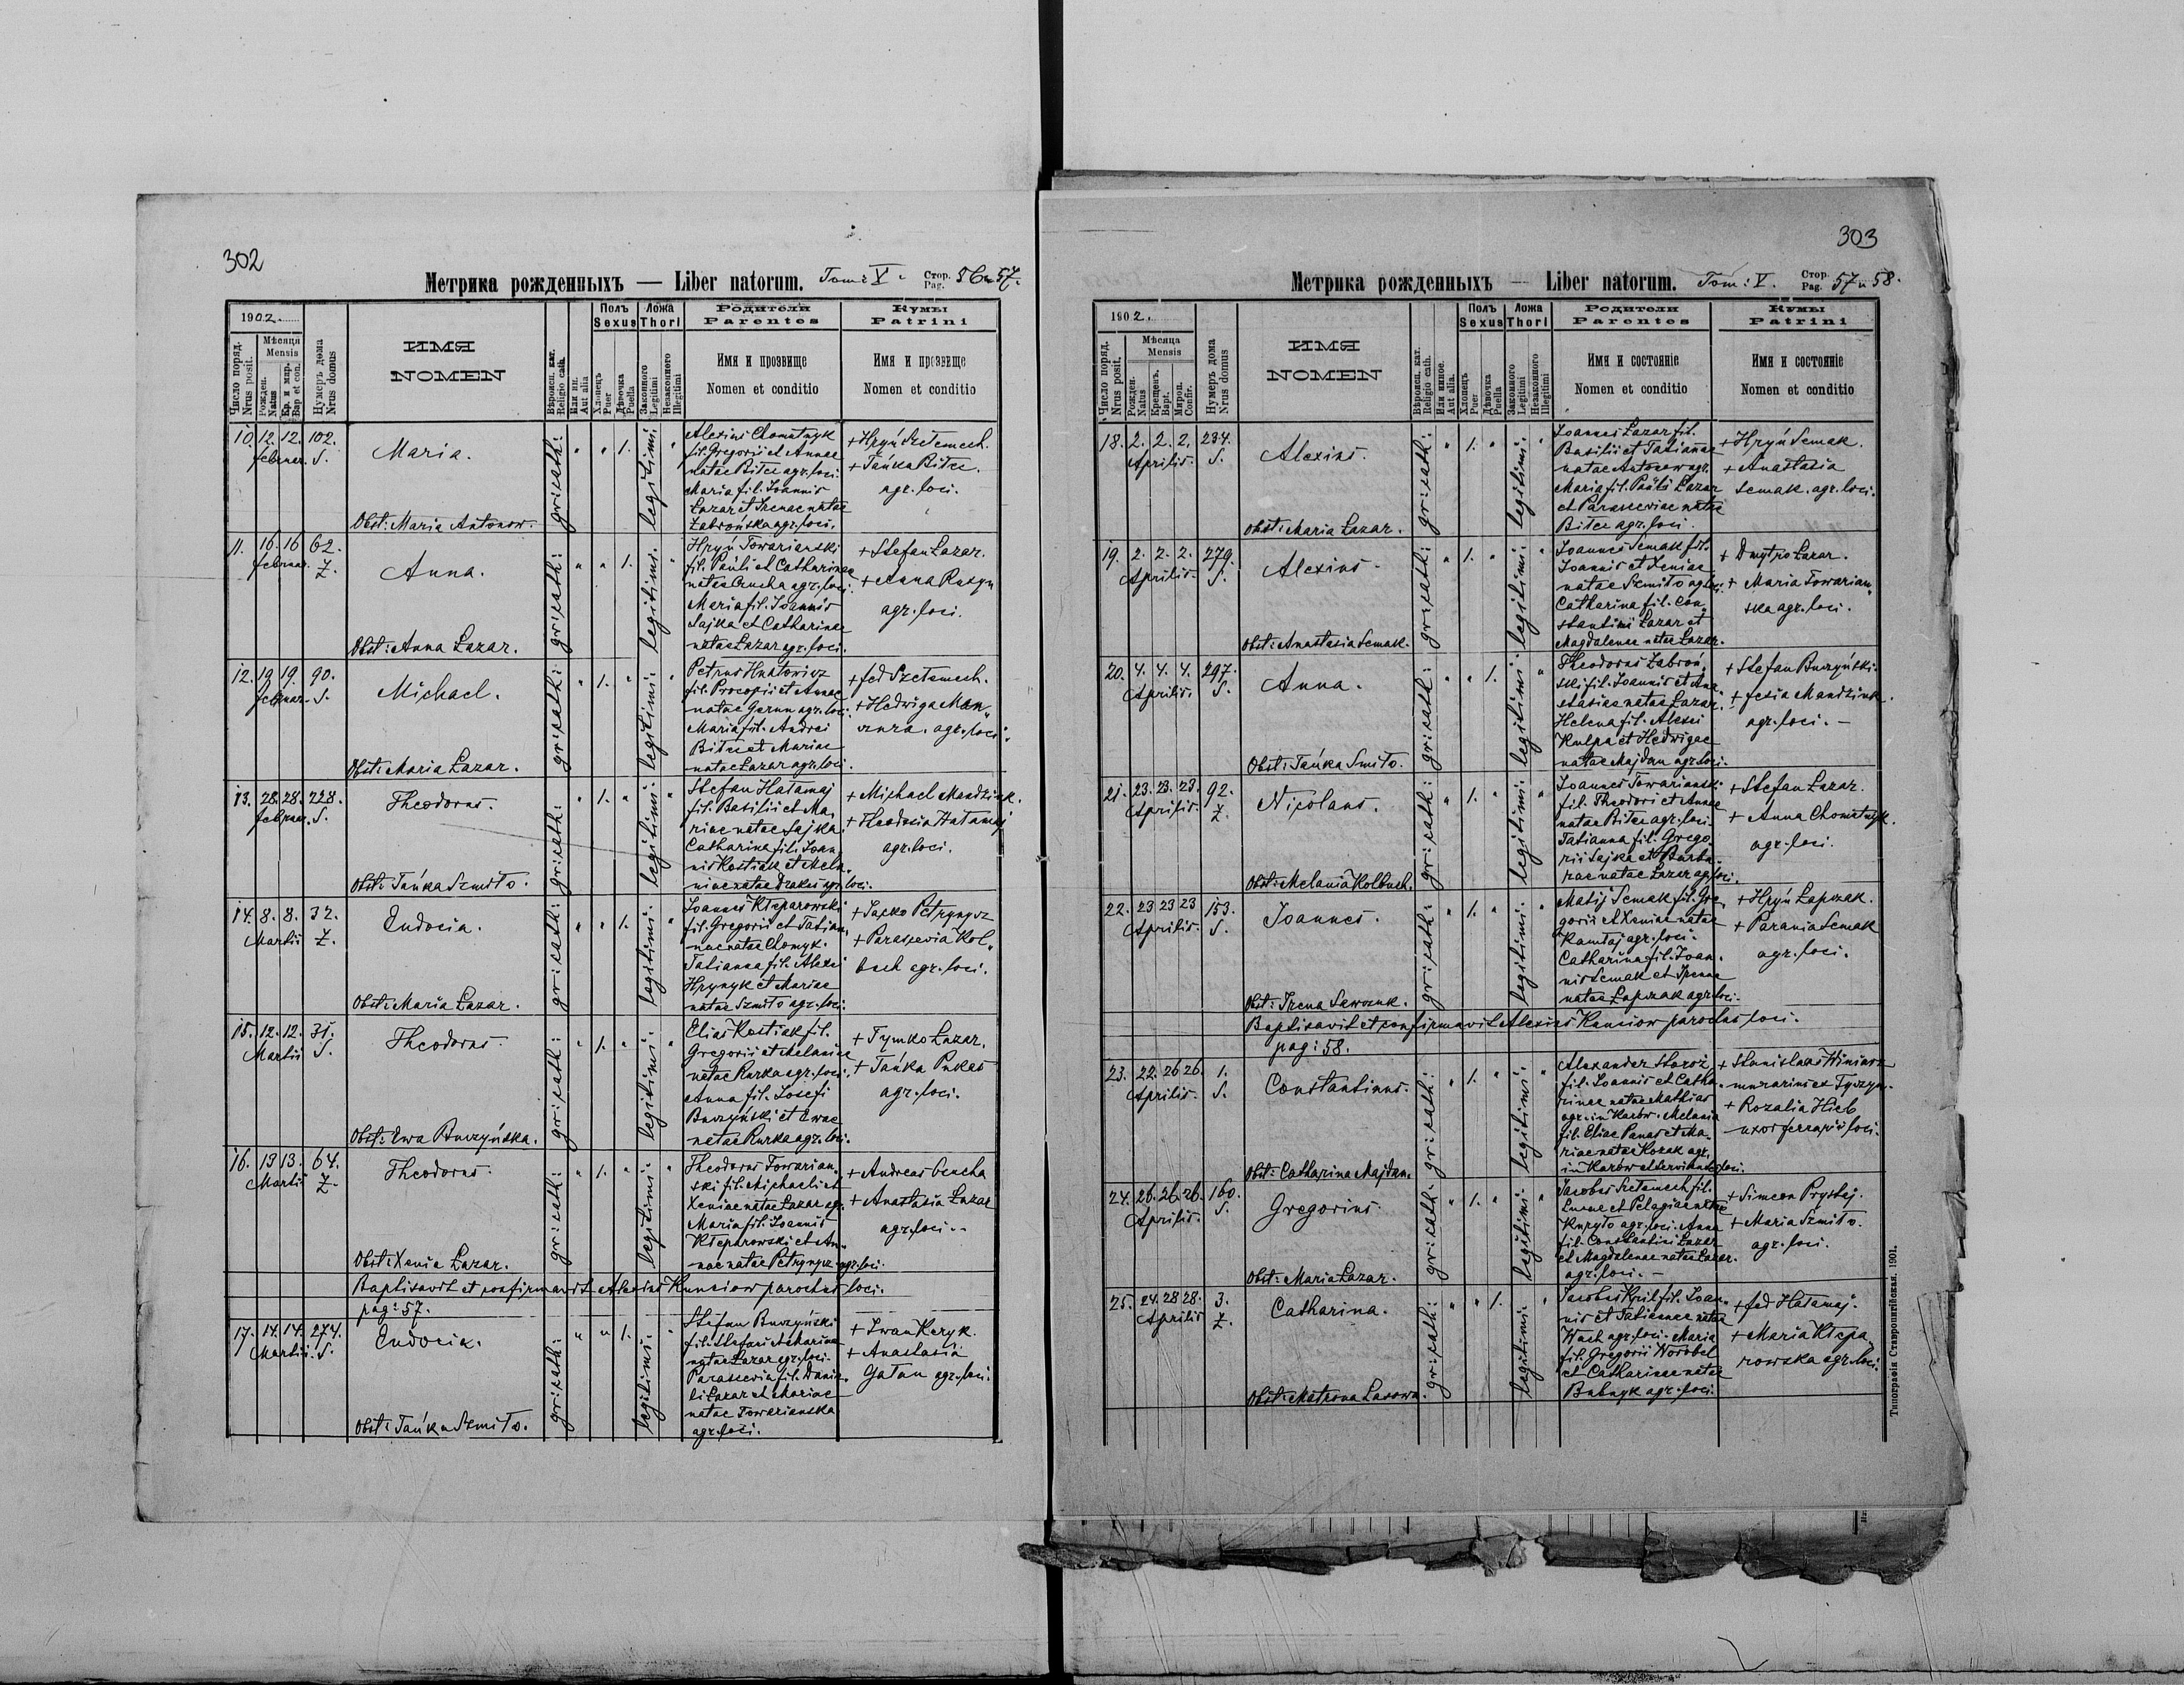 302
Метрика рожденныхъ — Liber natorum. Tom: V. Стор. Pag. 56 и 57.
1902.
Число поряд. Nrus posit.
Мѣсяця Mensis
Рожден. Natus
Кр. и мир. Bap et con.
Нумеръ дома Nrus domus
ИМЯ
NOMEN
Вѣроисп. кат. Religio cath.
Или ин. Aut alia
Полъ Sexus
Хлопець Puer
Дѣвочка Puella
Ложа Thori
Законного Legitimi
Незаконного Illegitimi
Родители
Parentes
Имя и прозвище
Nomen et conditio
Кумы
Patrini
Имя и прозвище
Nomen et conditio
10. 12. 12. 102.
februar. S.
Maria.
Obst: Maria Antonow.
gr: cath: " " 1. legitimi "
Alexius Chomatnyk
fil. Gregorii et Annae
natae Bitce agr. loci.
Maria fil. Joannis
Łazar et Irenae natae
Zabrońska agr. loci.
+ Hryń Sztemech.
+ Tańka Bitce.
agr. loci.
11. 16. 16 62.
februar. Z.
Anna.
Obst: Anna Łazar.
gr: cath: " " 1. legitimi. "
Hryń Towarianski
fil. Pauli et Catharinae
natae Oucha agr. loci.
Maria fil. Joannis
Sajka et Catharinae
natae Łazar agr. loci.
+ Stefan Łazar.
+ Anna Ruszyn
agr. loci.
12. 19 19. 90.
februar. S.
Michael.
Obst: Maria Łazar.
gr: cath: " 1. " legitimi: "
Petrus Hnatowicz
fil. Procopii et Annae
natae Gerun agr. loci.
Maria fil. Andrei
Bitce et Mariae
natae Łazar agr. loci.
+ fed Sztemech.
+ Hedwiga Man„
zura. agr. loci.
13. 28. 28. 228.
februar. S.
Theodorus.
Obst: Tańka Szmiło.
gr: cath: " 1. " legitimi: "
Stefan Hałamaj
fil. Basilii et Ma„
riae natae Sajka.
Catharina fil. Joan„
nis Kostiak et Mela„
niae natae Drakus agr. loci.
+ Michael Mandziuk.
+ Theodosia Hałamaj
agr. loci.
14. 8. 8. 32.
Martii Z.
Eudocia.
Obst: Maria Łazar.
gr: cath: " " 1. legitimi. "
Joannes Kleparowski
fil. Gregorii et Tatian„
nae natae Chomyk.
Tatianna fil. Alexi
Hrynyk et Mariae
natae Szmiło agr. loci.
+ Jacko Petrynycz
+ Parascevia Kol„
buch agr. loci.
15. 12. 12. 31.
Martii S.
Theodorus.
Obst: Ewa Burzyńska.
gr: cath: " 1. " legitimi: "
Elias Kostiak fil.
Gregorii et Melaniae
natae Rurka agr. loci.
Anna fil. Josefi
Burzyński et Ewae
natae Rurka agr. loci.
+ Tymko Łazar.
+ Tańka Pukas
agr. loci.
16. 13 13. 64.
Martii Z.
Theodorus.
Obst: Xenia Łazar.
gr: cath: " 1. " legitimi: "
Theodorus Towarian„
ski fil. Michaeli et
Xeniae natae Łazar agr.
Maria fil. Joannis
Kleparowski et An„
nae natae Petrynycz agr. loci.
+ Andreas Oucha
+ Anastasia Łazar
agr. loci.
Baptisavit et confirmavit Alexius Kunciow parochus loci.
pag: 57.
17. 14. 14. 274.
Martii. S.
Eudocia.
Obst: Tańka Szmiło.
gr: cath: " " 1. legitimi: "
Stefan Burzyński
fil. Stefani et Marina
natae Łazar agr. loci.
Parascevia fil. Danie„
li Łazar et Mariae
natae Towarianska
agr. loci.
+ Iwan Keryk.
+ Anastasia
Gałan agr. loci.
303
Метрика рожденныхъ — Liber natorum. Tom: V. Стор. Pag. 57 и 58.
1902.
Число поряд. Nrus posit.
Мѣсяця Mensis
Рожден. Natus
Крещенъ. Bapt.
Мироп. Confir.
Нумеръ дома Nrus domus
ИМЯ
NOMEN
Вѣроисп. кат. Religio cath.
Или иное. Aut alia.
Полъ Sexus
Хлопець Puer
Дѣвочка Puella
Ложа Thori
Законного Legitimi
Незаконного Illegitimi
Родители
Parentes
Имя и состоянiе
Nomen et conditio
Кумы
Patrini
Имя и состоянiе
Nomen et conditio
18. 2. 2. 2. 234.
Aprilis. S.
Alexius.
Obst: Maria Łazar.
gr: cath: " 1. " legitimi: "
Joannes Łazar fil.
Basilii et Tatiannae
natae Antonow agr.
Maria fil. Pauli Łazar
et Parasceviae natae
Bitce agr. loci.
+ Hryń Semak.
+ Anastasia
Semak. agr. loci.
19. 2. 2. 2. 279.
Aprilis. S.
Alexius.
Obst: Anastasia Semak.
gr: cath: " 1. " legitimi: "
Joannes Semak fil.
Joannis et Xeniae
natae Szmiło agr. loci.
Catharina fil. Con„
stantini Łazar et
Magdalenae natae Łazar.
+ Dmytro Łazar.
+ Maria Towarian„
ska agr. loci.
20. 4. 4. 4. 297.
Aprilis. S.
Anna.
Obst: Tańka Smiło.
gr: cath: " " 1. legitimi "
Theodorus Zabroń„
ski fil. Joannis et Ana„
stasiae natae Łazar.
Helena fil. Alexii
Kulpa et Hedwigae
natae Majdan agr. loci.
+ Stefan Burzyński.
+ fesia Mandziuk.
agr. loci. –
21. 23. 23. 23. 92.
Aprilis. Z.
Nicolaus.
Obst: Melania Kolbuch.
gr: cath: " 1. " legitimi: "
Joannes Towarianski
fil. Theodori et Annae
natae Bitce agr. loci.
Tatianna fil. Grego„
rii Sajka et Barba„
rae natae Łazar agr. loci.
+ Stefan Łazar.
+ Anna Chomatnyk.
agr. loci.
22. 23 23 23 153.
Aprilis. S.
Joannes.
Obst: Irena Sawczuk.
gr: cath: " 1. " legitimi: "
Matij Semak fil. Gre„
gorii et Xeniae natae
Kamłaj agr. loci.
Catharina fil. Joan„
nis Semak et Irenae
natae Łapczak agr. loci.
+ Hryń Łapczak.
+ Parania Semak
agr. loci.
Baptisavit et confirmavit Alexius Kunciow parochus loci.
pag: 58.
23. 22. 26 26. 1.
Aprilis. S.
Constantinus.
Obst: Catharina Majdan.
gr: cath: " 1. " legitimi: "
Alexander Storoż
fil. Joannis et Catha„
rinae natae Mathias
agr. in Karów. Melania
fil. Eliae Panas et Ma„
riae natae Kozak agr.
in Karów
+ Stanislaus Winiarz
murarius ex Tyczyn.
+ Rozalia Hieb
uxor ferrarii loci.
24. 26. 26. 26. 160.
Aprilis. S.
Gregorius.
Obst: Maria Łazar.
gr: cath: " 1. " legitimi: "
Jacobus Sztemech fil.
Lucae et Pelagiae natae
Kuryło agr. loci. Anna
fil. Constantini Łazar
et Magdalenae natae Łazar.
agr. loci. –
+ Simeon Prystaj.
+ Maria Szmiło.
agr. loci.
25. 24. 28 28. 3.
Aprilis Z.
Catharina.
Obst: Matrona Lasowa.
gr: cath: " " 1. legitimi: "
Jacobus Kril fil. Joan„
nis et Tatiannae natae
Wach agr. loci. Maria
fil. Gregorii Worobel
et Catharinae natae
Bubnyk agr. loci.
+ fed Hałamaj.
+ Maria Klepa„
rowska agr. loci.
Типографiя Ставропигiйская. 1901.